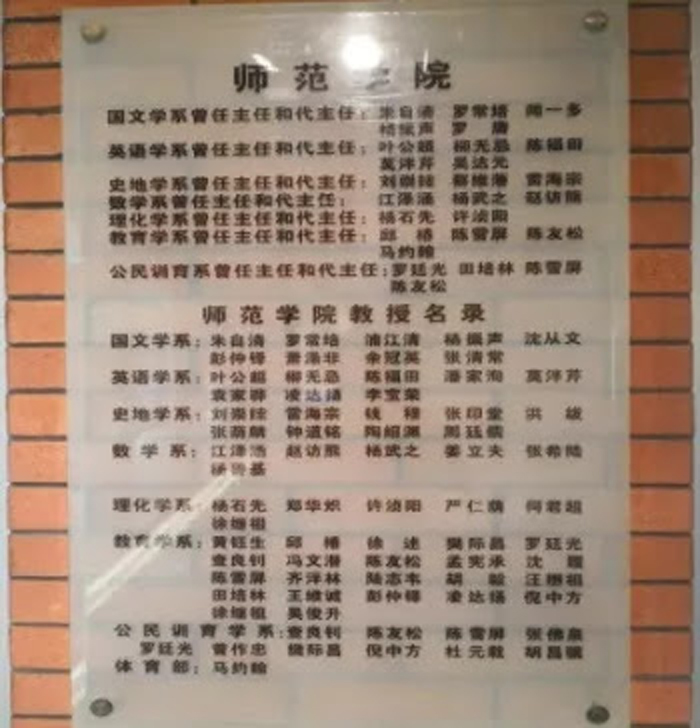 师范学院
国文学系曾任主任和代主任：朱自清 罗常培 闻一多
杨振声 罗 庸
英语学系曾任主任和代主任：叶公超 柳无忌 陈福田
莫泮芹 吴达元
史地学系曾任主任和代主任：刘崇鋐 蔡维藩 雷海宗
数学系曾任主任和代主任：江泽涵 杨武之 赵访熊
理化学系曾任主任和代主任：杨石先 许浈阳
教育学系曾任主任和代主任：邱 椿 陈雪屏 陈友松
马约翰
公民训育系曾任主任和代主任：罗廷光 田培林 陈雪屏
陈友松
师范学院教授名录
国文学系：朱自清 罗常培 浦江清 杨振声 沈从文
彭仲铎 萧涤非 余冠英 张清常
英语学系：叶公超 柳无忌 陈福田 潘家洵 莫泮芹
袁家骅 凌达扬 李宝荣
史地学系：刘崇鋐 雷海宗 钱 穆 张印堂 洪 绂
张荫麟 钟道铭 陶绍渊 周廷儒
数学系：江泽涵 赵访熊 杨武之 姜立夫 张希陆
杨善基
理化学系：杨石先 郑华炽 许浈阳 严仁荫 何君超
徐继祖
教育学系：黄钰生 邱 椿 徐 述 樊际昌 罗廷光
查良钊 冯文潜 陈友松 孟宪承 沈 履
陈雪屏 齐泮林 陆志韦 胡 毅 汪懋祖
田培林 王维诚 彭仲铎 凌达扬 倪中方
徐继祖 吴俊升
公民训育学系：查良钊 陈友松 陈雪屏 张佛泉
罗廷光 曾作忠 樊际昌 倪中方 杜元载 胡昌骐
体育部：马约翰